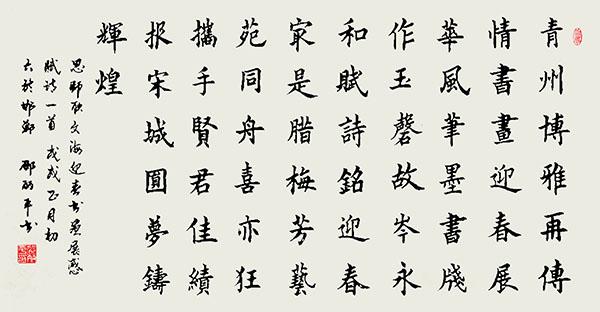 青州博雅再傳
情書畫迎春展
華風筆墨書牋
作玉磬故岑永
和賦詩銘迎春
家是腊梅芳藝
苑同舟喜亦狂
攜手賢君佳績
报宋城圓夢鑄
輝煌
文海迎春书画展感
賦詩一首 戊戌正月初
六於邯鄲 邵 平书